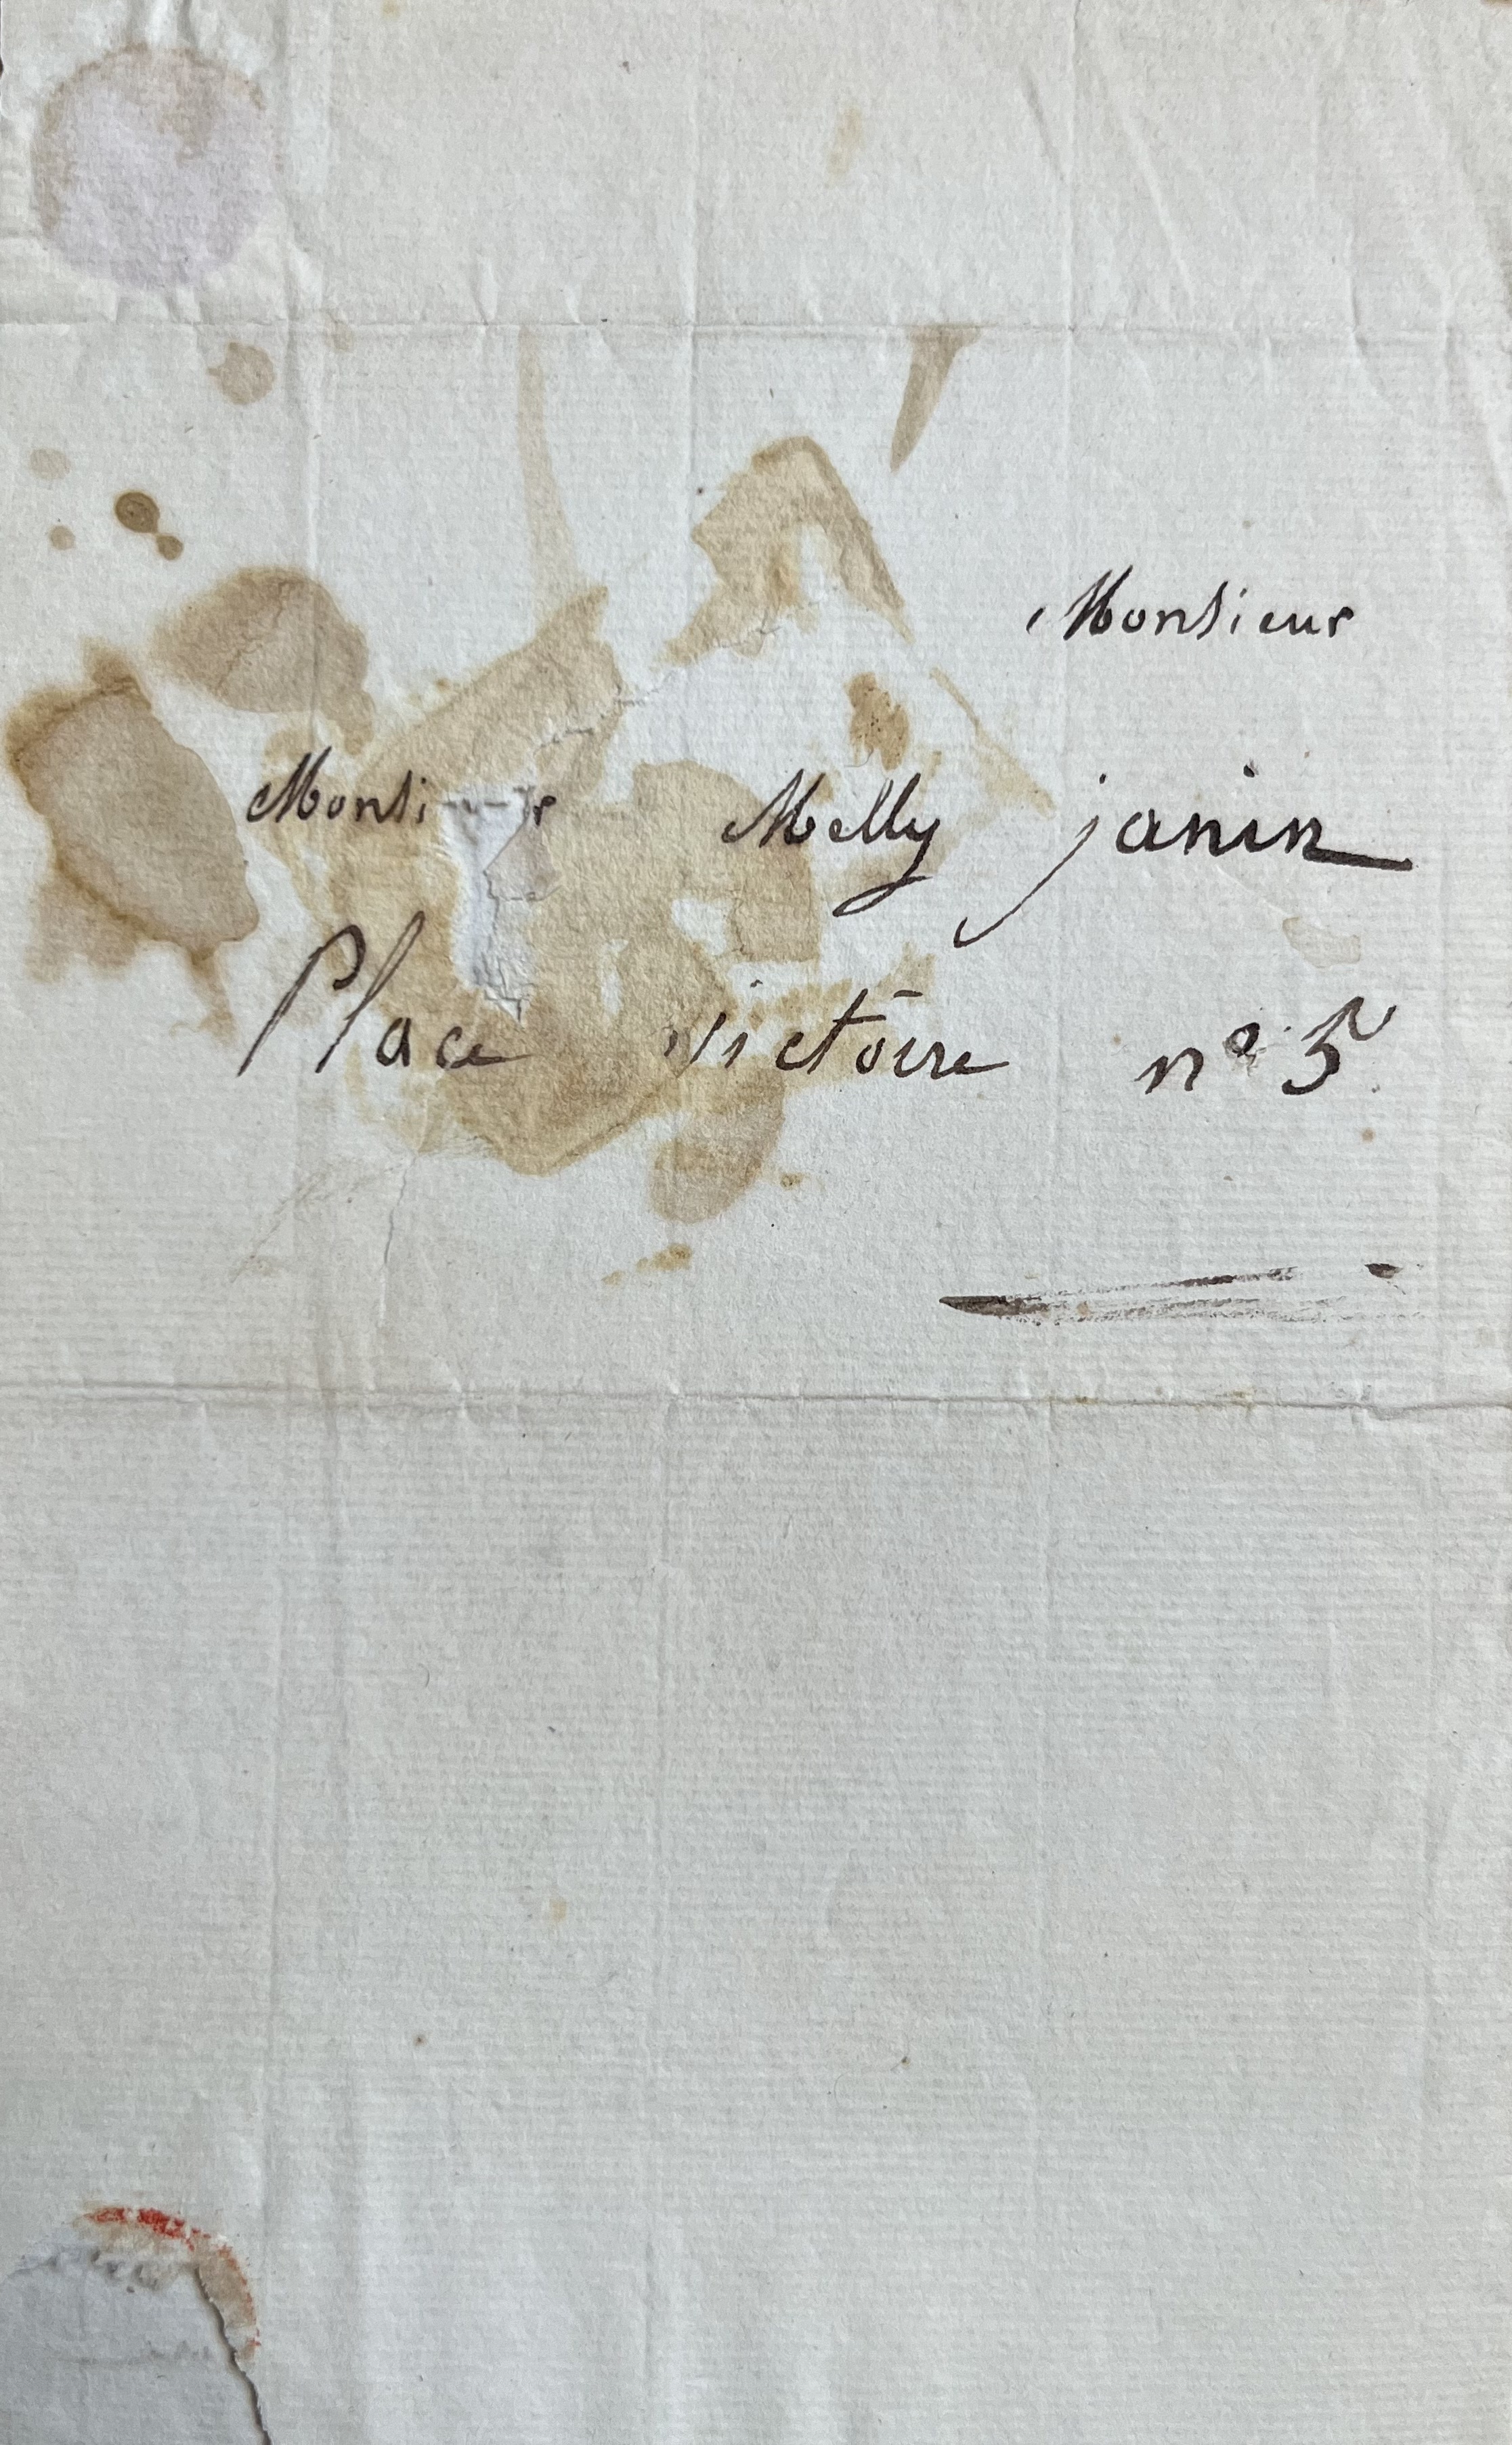 Monsieur
Monsieur Melly janin
Place victoire nº 5